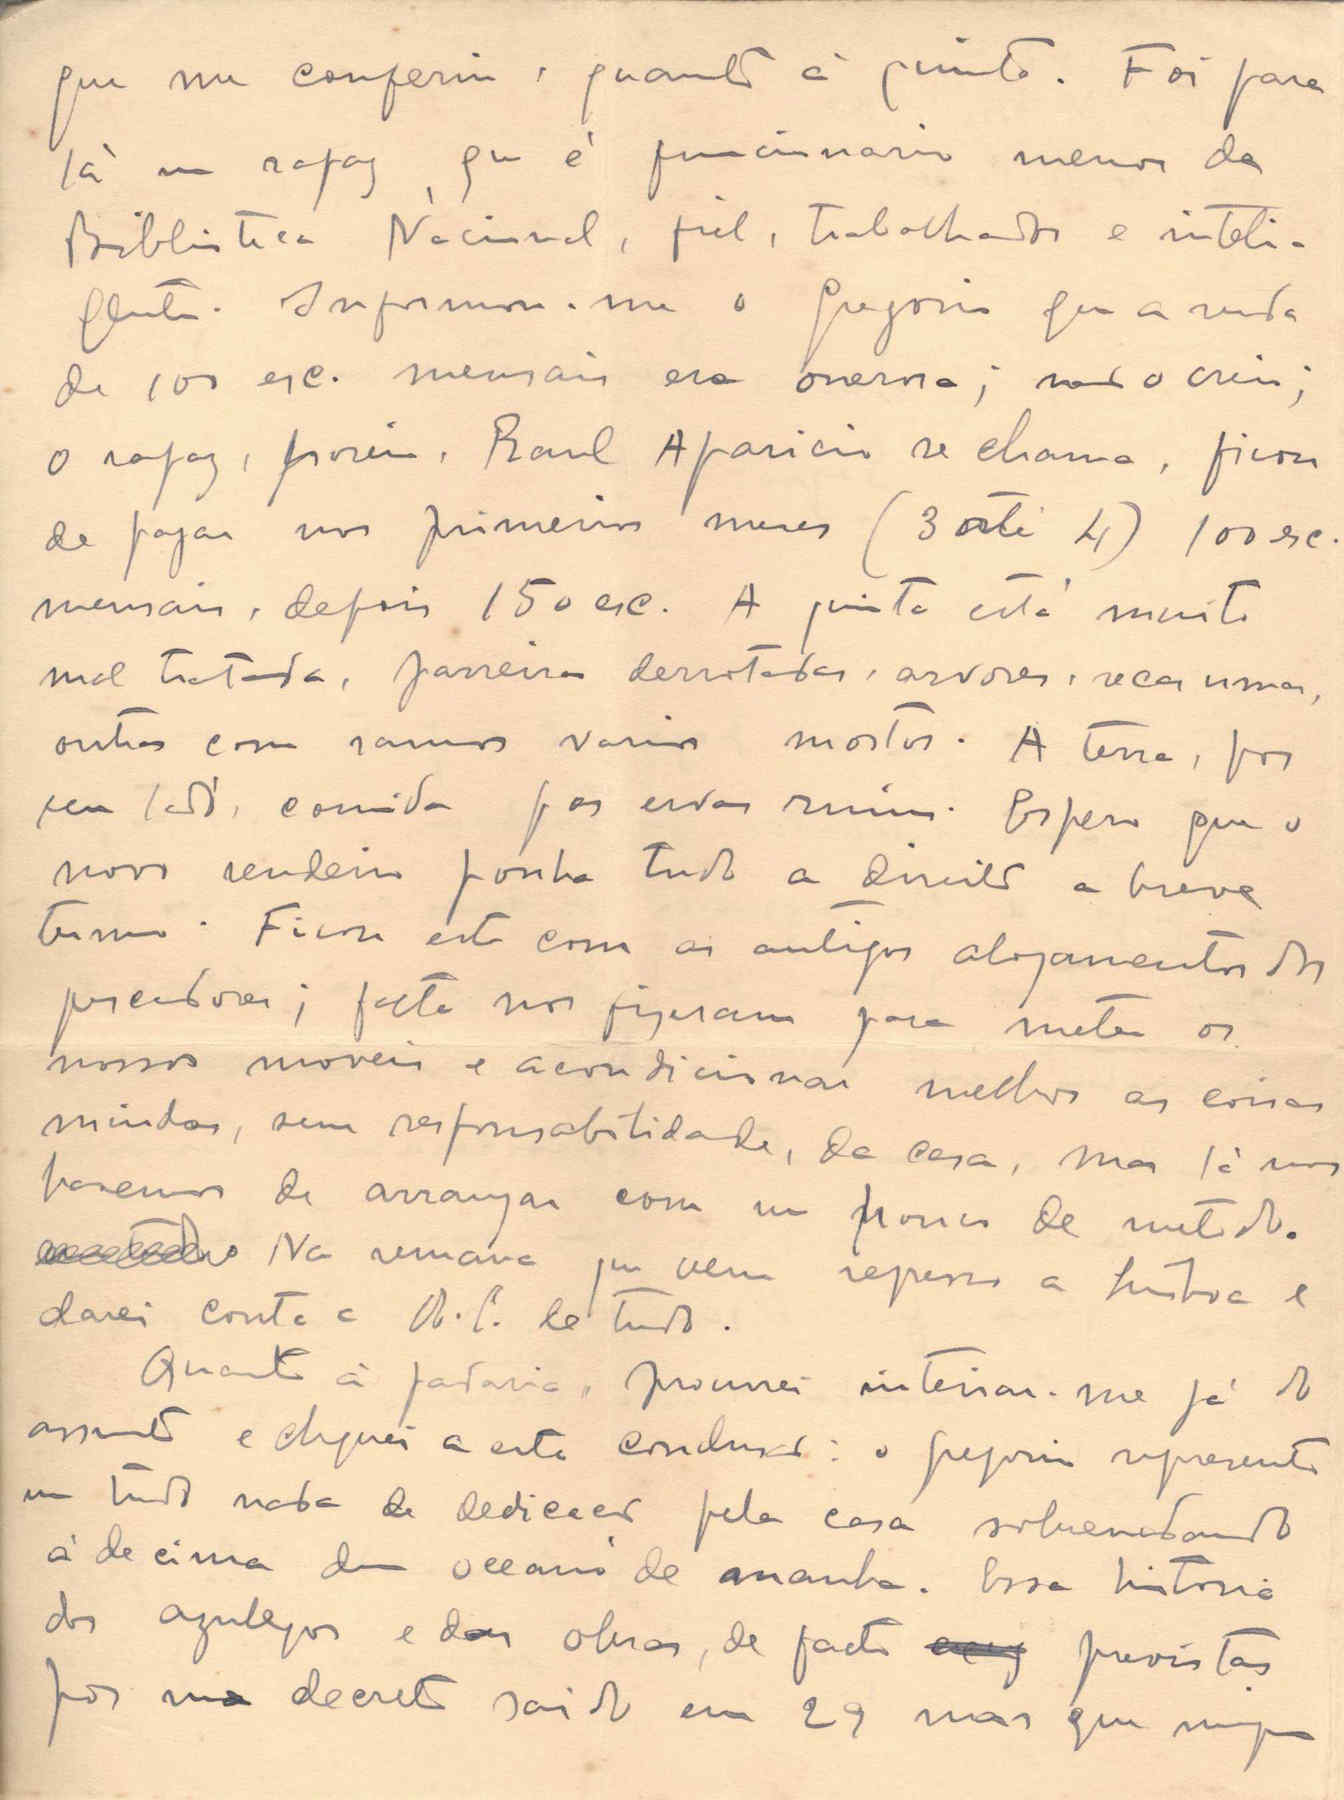 que me conferiu, quanto á quinta. Foi para
lá um rapaz, que é funcionario menor da
Biblioteca Nacional, fiel, trabalhador e inteli-
gente. Informou-me o Gregorio que a renda
de 100 esc. mensais era onerosa; não o creiu;
o rapaz, porém, Raul Aparicio se chama, ficou
de pagar nos primeiros meses (3 até 4) 100 esc.
mensais, depois 150 esc. A quinta está muito
mal tratada, parreiras derrotadas, arvores, secas umas,
outras com ramos varios mortos. A terra, por
seu lado, comida por ervas ruins. Espero que o
novo rendeiro ponha tudo a direito a breve
termo. Ficou este com os antigos alojamentos dos
pescadores; falta nos fizeram para meter os
nossos moveis e acondicionar melhor as coisas
miudas, sem responsabilidade, da casa, mas lá nos
havemos de arranjar com um pouco de metodo.
Na semana que vem regresso a Lisboa e
darei conta a de tudo.
Quanto á padaria, procurei inteirar-me já do
assunto e cheguei a esta conclusão: o Gregorio representa
um tudo nada de dedicação pela casa sobrenadando
á de cima dum oceano de manha. Essa historia
dos azulejos e das obras, de facto previstas
por um decreto saido em 29 mas que